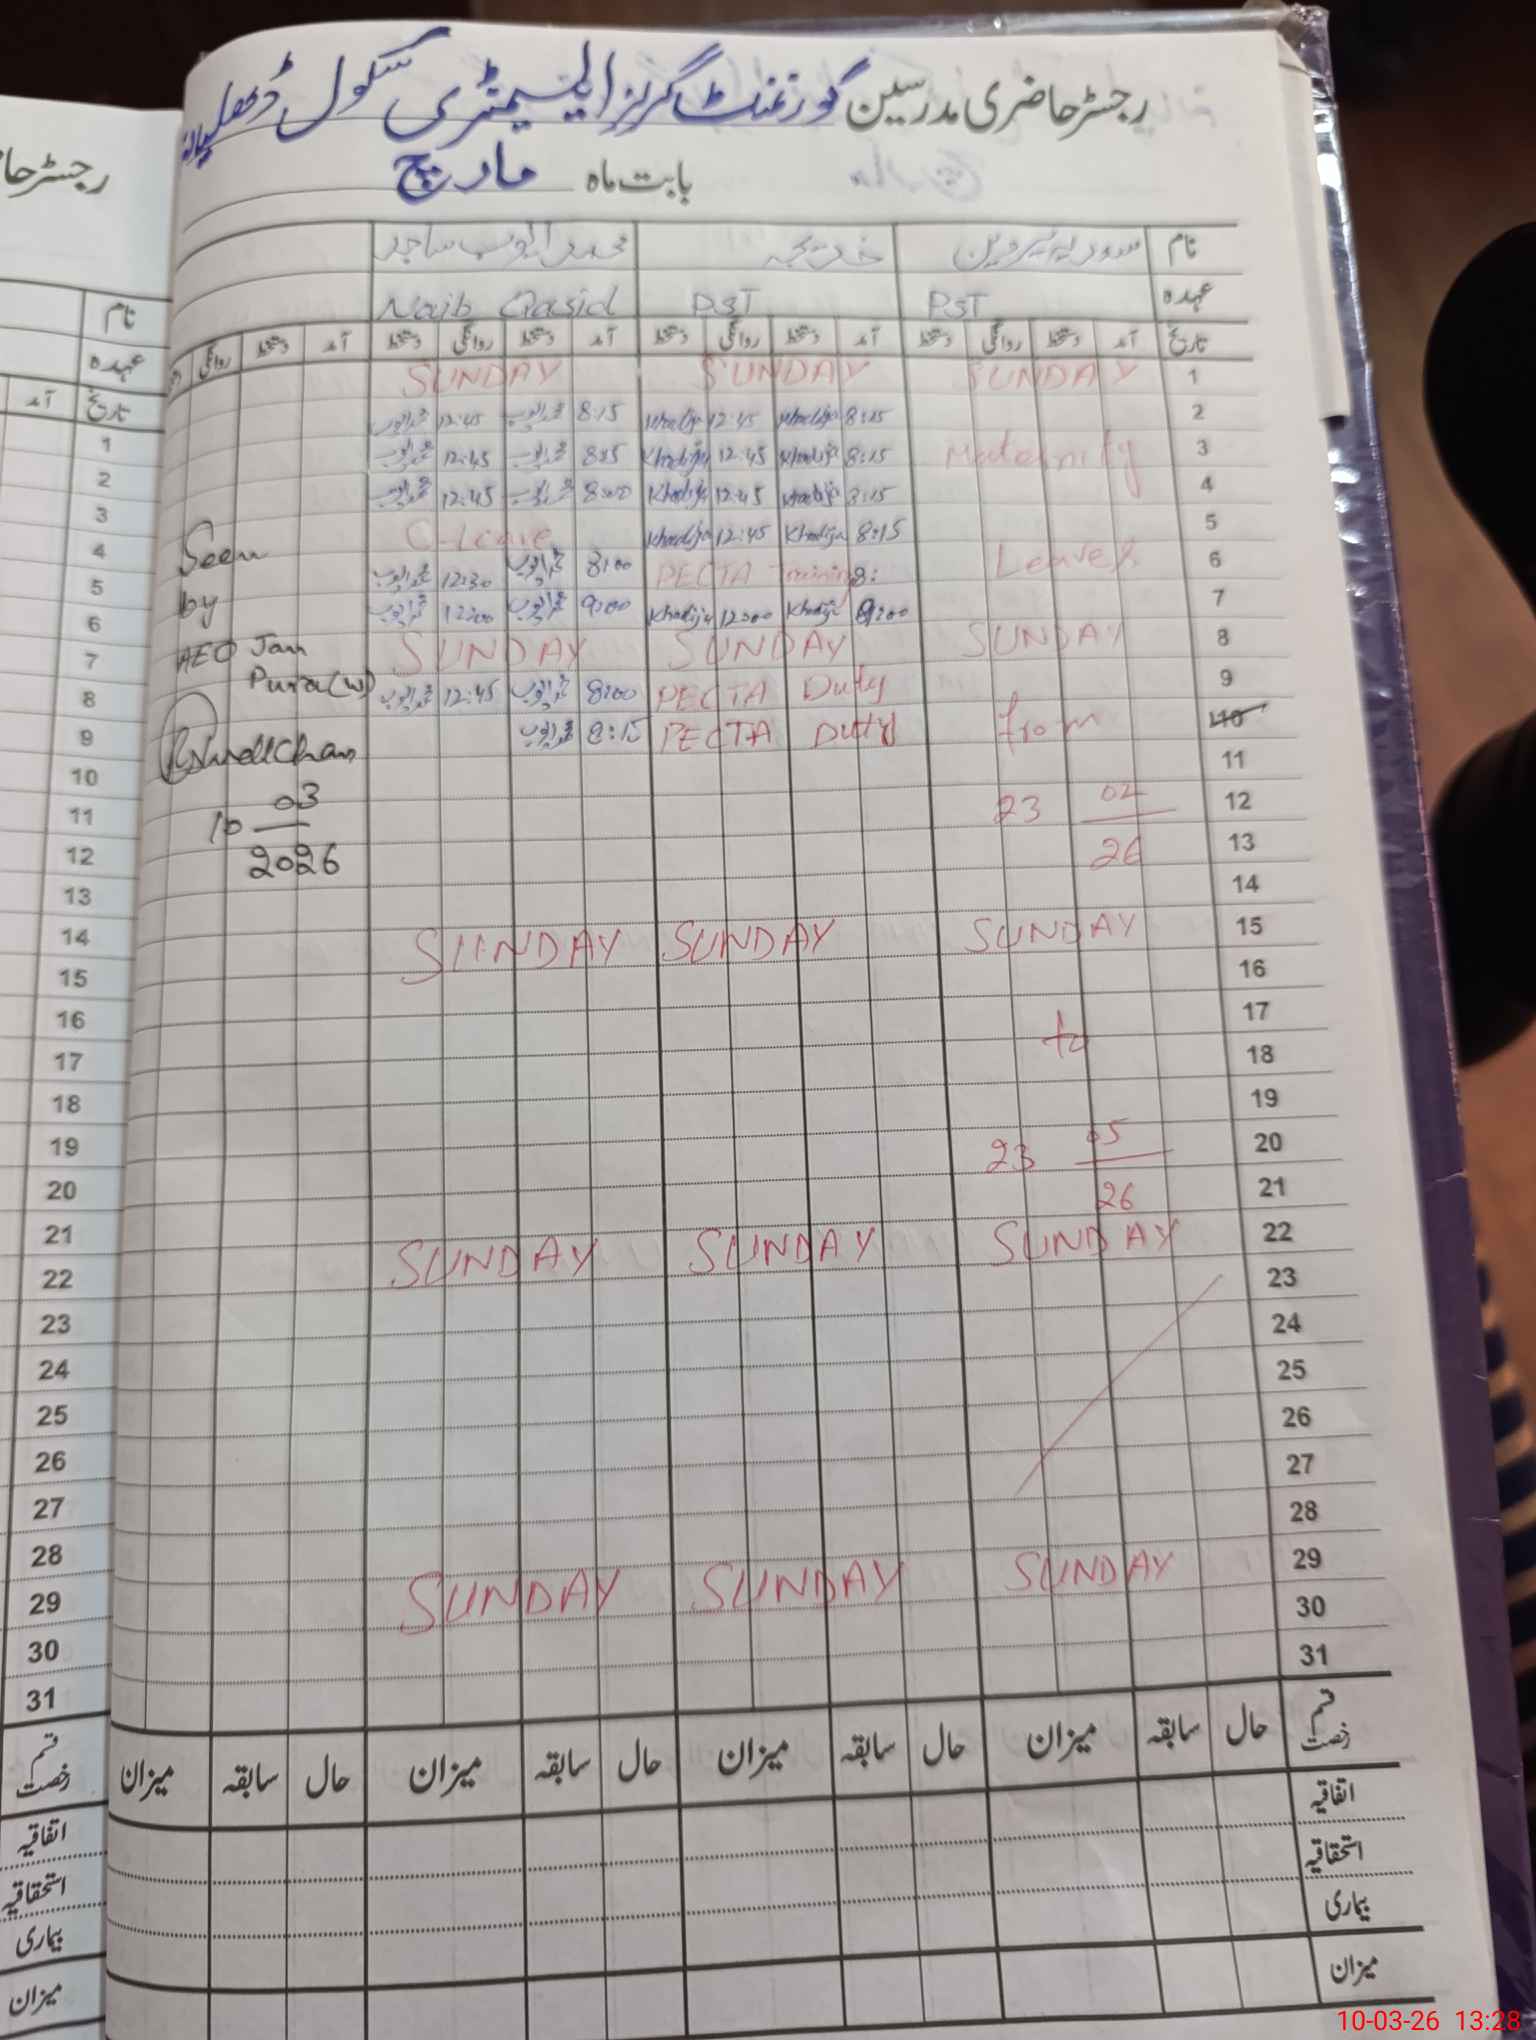 رجسٹر حاضری مدرسین گورنمنٹ گرلز ایلیمنٹری سکول
بابت ماہ مارچ
نام خدیجہ محمد ایوب ساجد
عہدہ PST PST Naib Qasid
تاریخ آمد دستخط روانگی دستخط آمد دستخط روانگی دستخط آمد دستخط روانگی دستخط آمد دستخط روانگی
1 SUNDAY SUNDAY SUNDAY
2 8:15 Khadija 12:45 Khadija 8:15 محمد ایوب 12:45 محمد ایوب
3 Maternity 8:15 Khadija 12:45 Khadija 8:15 محمد ایوب 12:45 محمد ایوب
4 8:15 Khadija 12:45 Khadija 8:00 محمد ایوب 12:45 محمد ایوب
5 8:15 Khadija 12:45 Khadija C-Leave
6 Leave PECTA Training 8: 8:00 محمد ایوب 12:30 محمد ایوب
7 9:00 Khadija 12:00 Khadija 9:00 محمد ایوب 12:00 محمد ایوب
8 SUNDAY SUNDAY SUNDAY
9 PECTA Duty 8:00 محمد ایوب 12:45 محمد ایوب
10 from PECTA Duty 8:15 محمد ایوب
11
12 23 02
13 26
14
15 SUNDAY SUNDAY SUNDAY
16
17 to
18
19
20 23 05
21 26
22 SUNDAY SUNDAY SUNDAY
23
24
25
26
27
28
29 SUNDAY SUNDAY SUNDAY
30
31
Seen
by
AEO Jam
Pura (w)
10 03
2026
قسم رخصت حال سابقہ میزان حال سابقہ میزان حال سابقہ میزان حال سابقہ میزان
اتفاقیہ
استحقاقیہ
بیماری
میزان
رجسٹر حا
نام
عہدہ
تاریخ آمد
1
2
3
4
5
6
7
8
9
10
11
12
13
14
15
16
17
18
19
20
21
22
23
24
25
26
27
28
29
30
31
قسم رخصت
اتفاقیہ
استحقاقیہ
بیماری
میزان
10-03-26 13:28